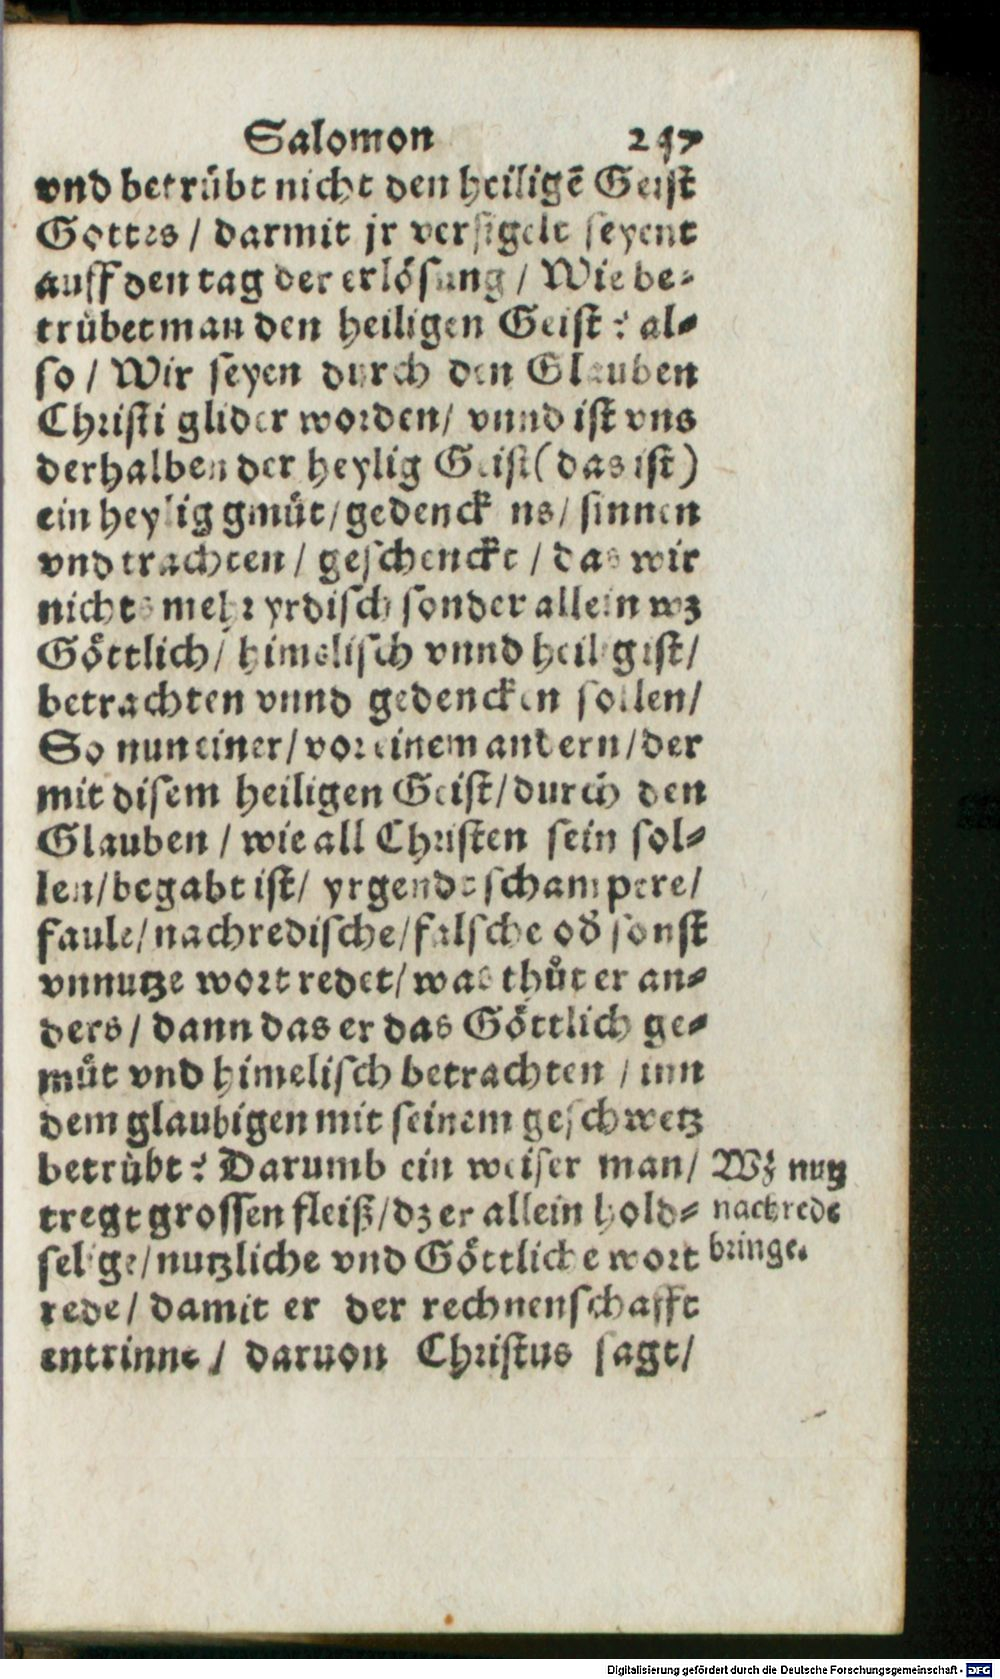 Salomon 247
vnd betrübt nicht den heiligē Geist
Gottes / darmit jr versigelt seyent
auff den tag der erlösung / Wie be-
trübet man den heiligen Geist? al-
so / Wir seyen durch den Glauben
Christi glider worden / vnnd ist vns
derhalben der heylig Geist (das ist)
ein heylig gmüt / gedenckens / sinnen
vnd trachten / geschenckt / das wir
nichts mehr yrdisch sonder allein wz
Göttlich / himelisch vnnd heilig ist /
betrachten vnnd gedencken sollen /
So nun einer / vor einem andern / der
mit disem heiligen Geist / durch den
Glauben / wie all Christen sein sol-
len / begabt ist / yrgends schampere /
faule / nachredische / falsche od̄ sonst
vnnutze wort redet / was thůt er an-
ders / dann das er das Göttlich ge-
müt vnd himelisch betrachten / inn
dem glaubigen mit seinem geschwetz
betrübt? Darumb ein weiser man /
tregt grossen fleiß / dz er allein hold-
selige / nutzliche vnd Göttliche wort
rede / damit er der rechnenschafft
entrinne / daruon Christus sagt /
Wz nutz
nachrede
bringe.
Digitalisierung gefördert durch die Deutsche Forschungsgemeinschaft - DFG